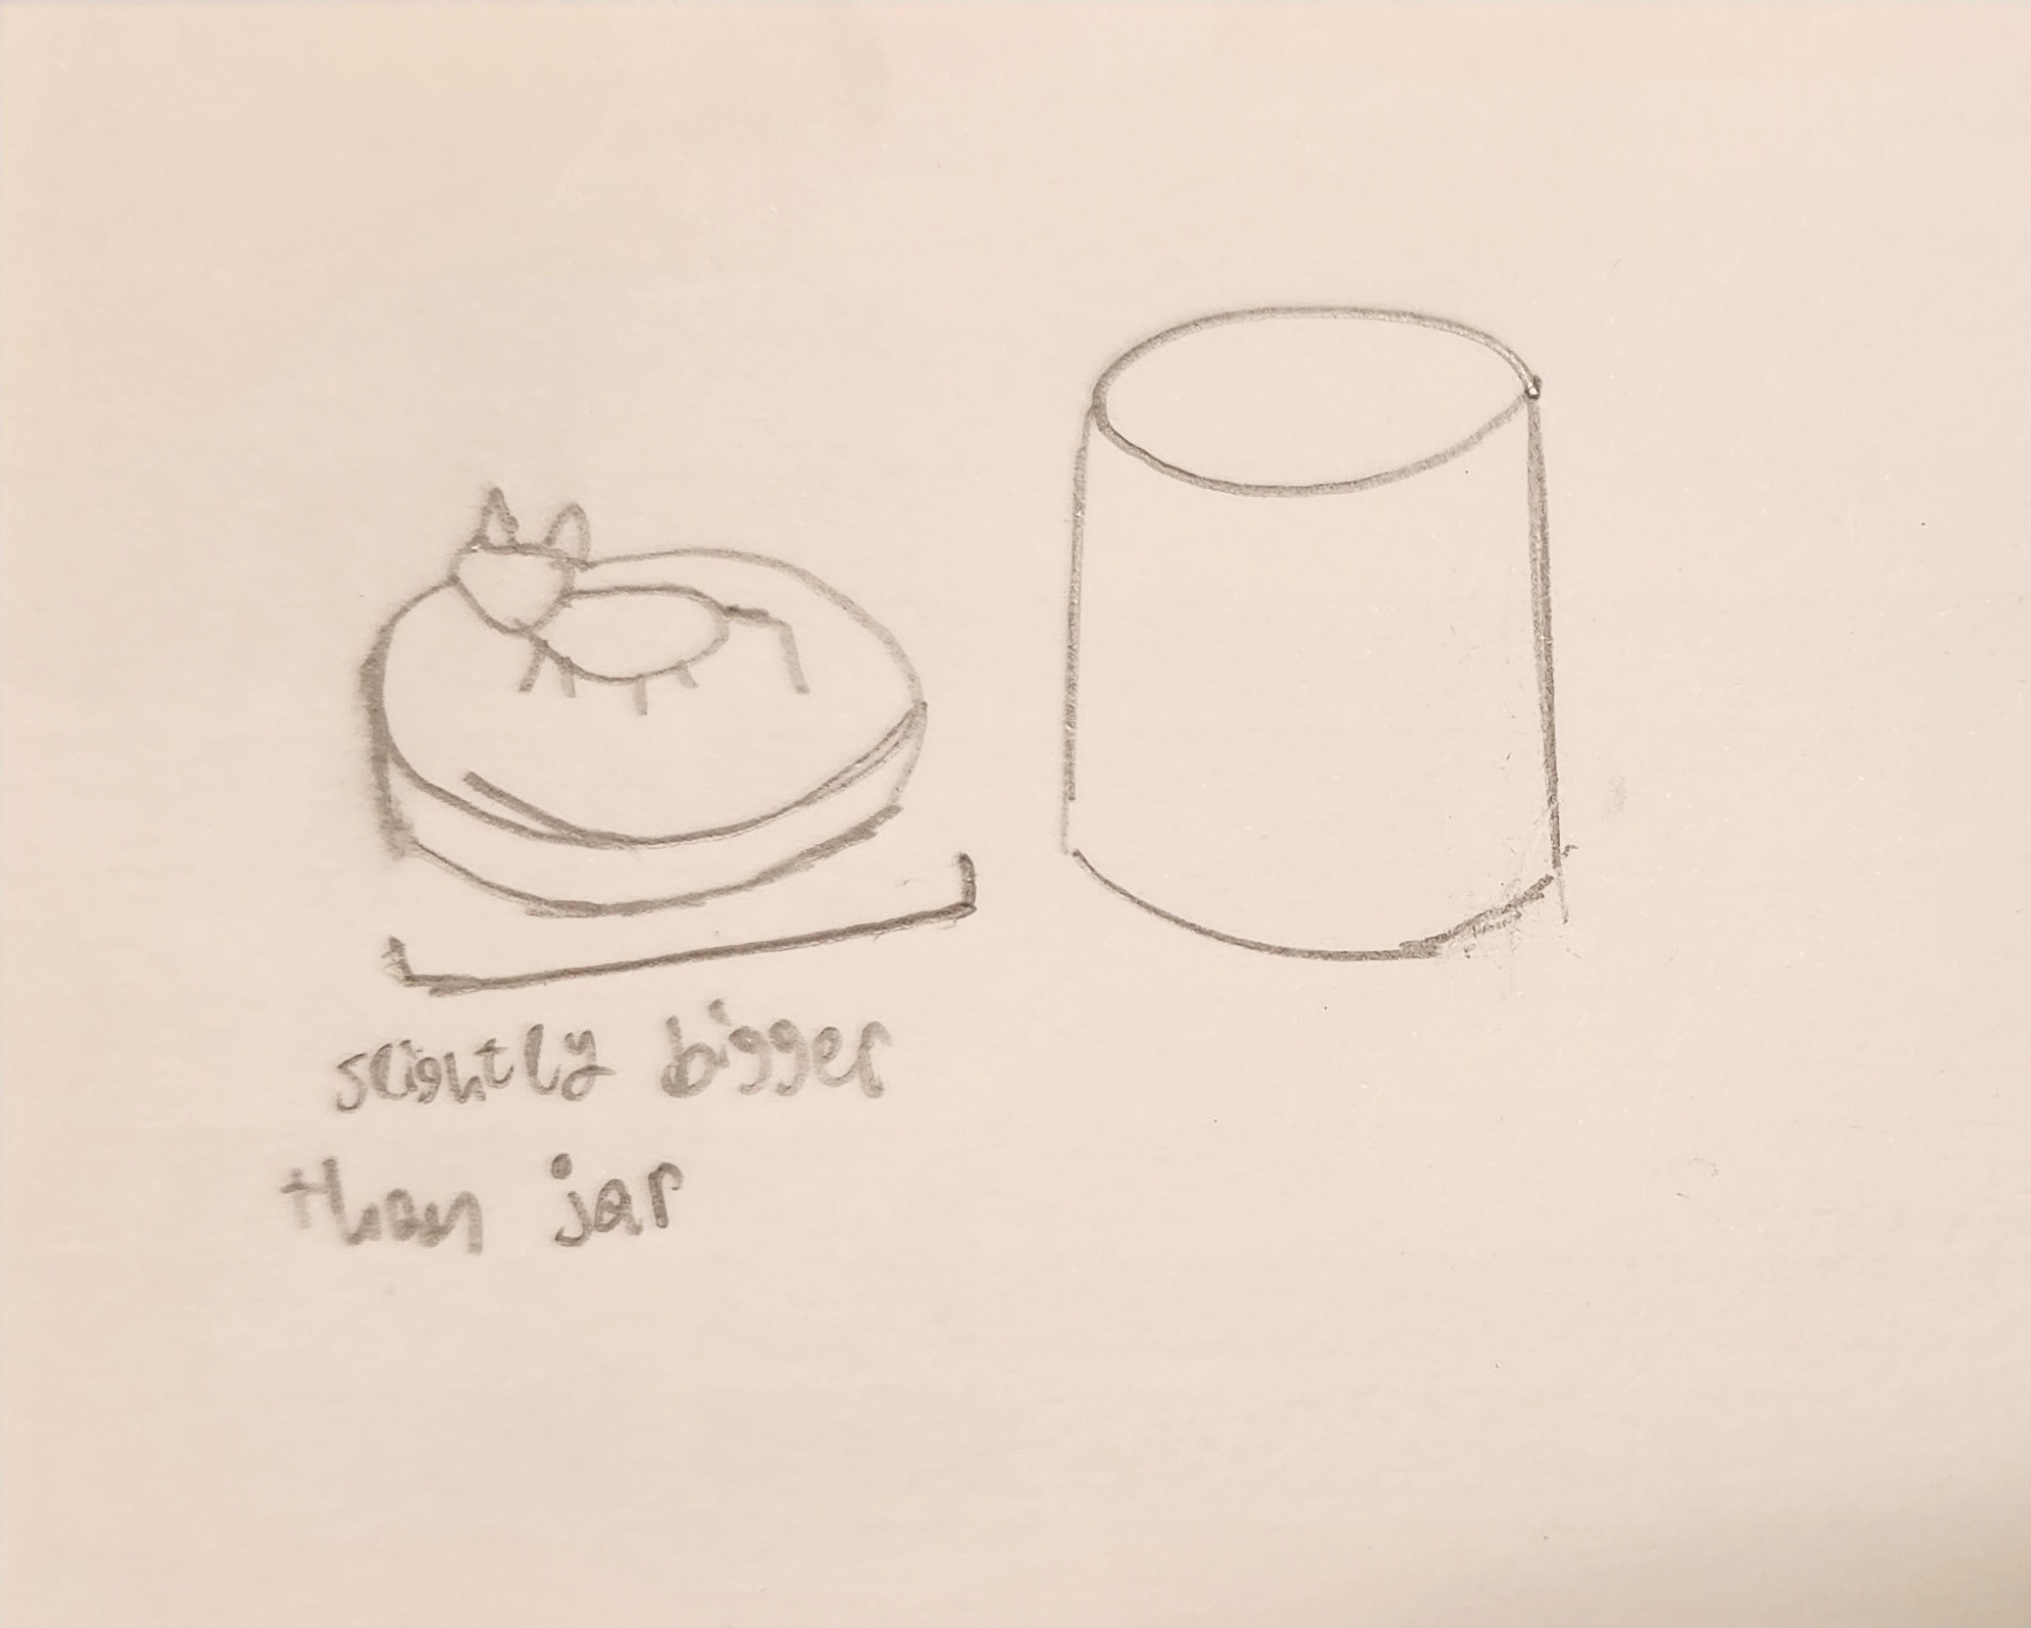 slightly bigger
than jar